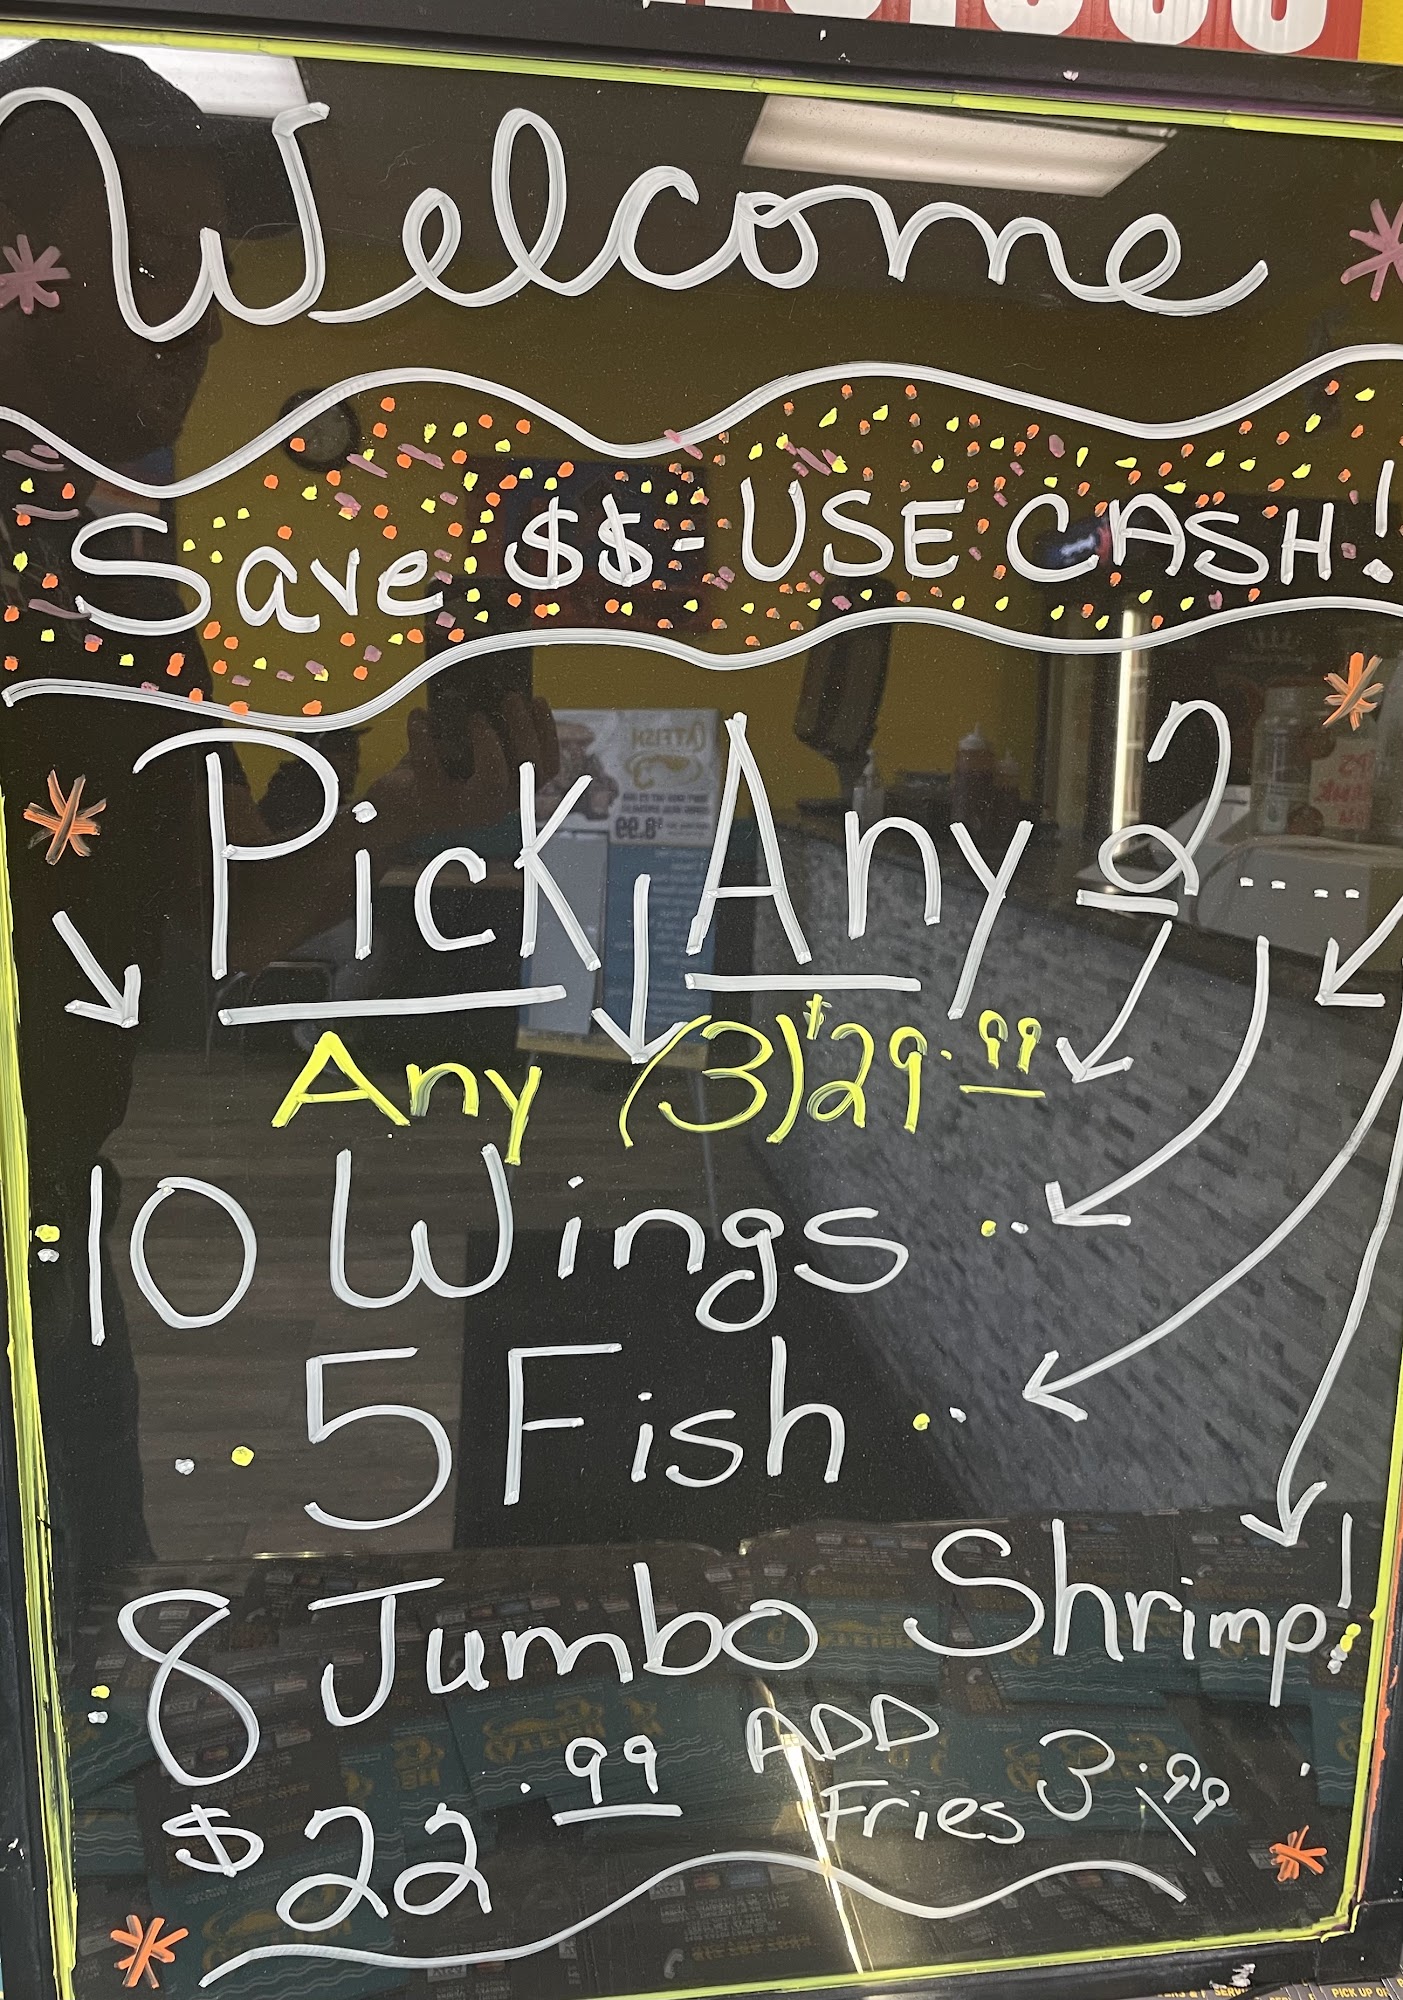 Welcome
Save $$- USE CASH!
Pick Any 2....
Any (3) $29.99
10 Wings
5 Fish
8 Jumbo Shrimp!
$22.99
ADD
Fries 3.99
CATFISH
$8.99
PICK UP